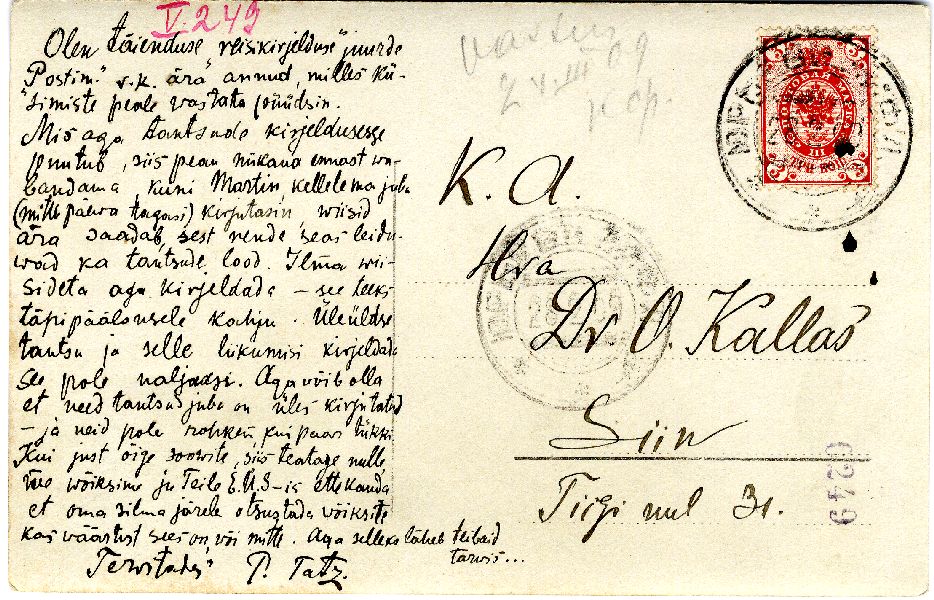 V. 249
Olen täienduse reisikirjelduse juurde
"Postim." s.k. ära annud, milles kü-
simiste peale vastata püüdsin.
Mis aga tantsude kirjeldusesse
puutub, siis pean nukana ennast wa-
bandama, kuni Martin kellele ma juba
(mitte päewa tagasi) kirjutasin, wiisid
ära saadab, sest nende seas leidu-
wad ka tantsude lood. Ilma wii-
sideta aga kirjeldada – see teeks
täpipäälsusele kahju. Üleüldse
tantsu ja selle liikumisi kirjeldada
see pole naljaasi. Aga võib olla
et need tantsud juba on üles kirjutatud
– ja neid pole rohkem kui paar tükki.
Kui just õige soowite, siis teatage mulle
me wõiksime ju Teile E.Ü.S-is ette kanda
et oma silma järele otsustada võiksite
kas väärtust sees on või mitte. Aga selleks läheb teibaid
tarvis...
Terwitades P. Tatz.
24.III 09
K. A.
Hra
Dr O. Kallas
Siin
Tiigi uul 31.
6249